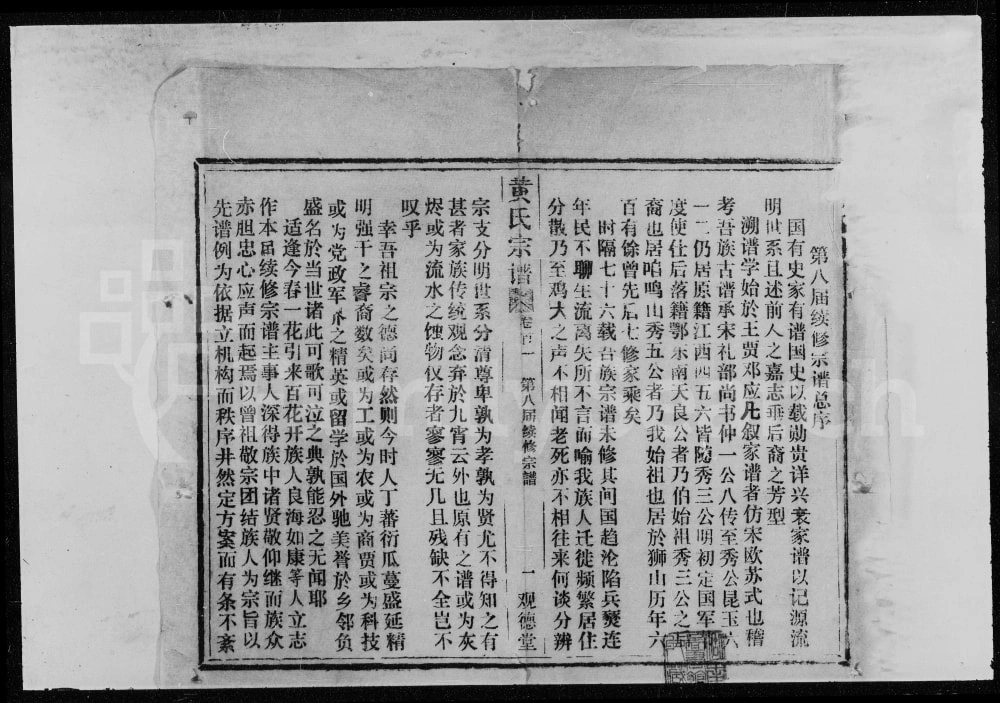 第八届续修宗谱总序
国有史家有谱国史以载勋贵详兴衰家谱以记源流
明世系且述前人之嘉志垂后裔之芳型
溯谱学始於王贾邓应凡叙家谱者仿宋欧苏式也稽
考吾族古谱承宋礼部尚书仲一公八传至秀公昆玉六
一二仍居原籍江西四五六皆随秀三公明初定国军
度使仕后落籍鄂东南天良公者乃伯始祖秀三公之
裔也居咱鸣山秀五公者乃我始祖也居於狮山历年六
百有馀曾先后七修家乘矣
时隔七十六载吾族宗谱未修其间国趋沦陷兵燹连
年民不聊生流离失所不言而喻我族人迁徙频繁居住
分散乃至鸡犬之声不相闻老死亦不相往来何谈分辨
黄氏宗谱
卷首一
第八届续修宗谱
一
观德堂
宗支分明世系分清尊卑孰为孝孰为贤尤不得知之有
甚者家族传统观念弃於九宵云外也原有之谱或为灰
烬或为流水之蚀物仅存者寥寥无几且残缺不全岂不
叹乎
幸吾祖宗之德尚存然则今时人丁蕃衍瓜蔓盛延精
明强干之睿裔数矣或为工或为农或为商贾或为科技
或为党政军 之精英或留学於国外驰美誉於乡邻负
盛名於当世诸此可歌可泣之典孰能忍之无闻耶
适逢今春一花引来百花开族人良海如康等人立志
作本届续修宗谱主事人深得族中诸贤敬仰继而族众
赤胆忠心应声而起焉以曾祖敬宗团结族人为宗旨以
先谱例为依据立机构而秩序井然定方案而有条不紊